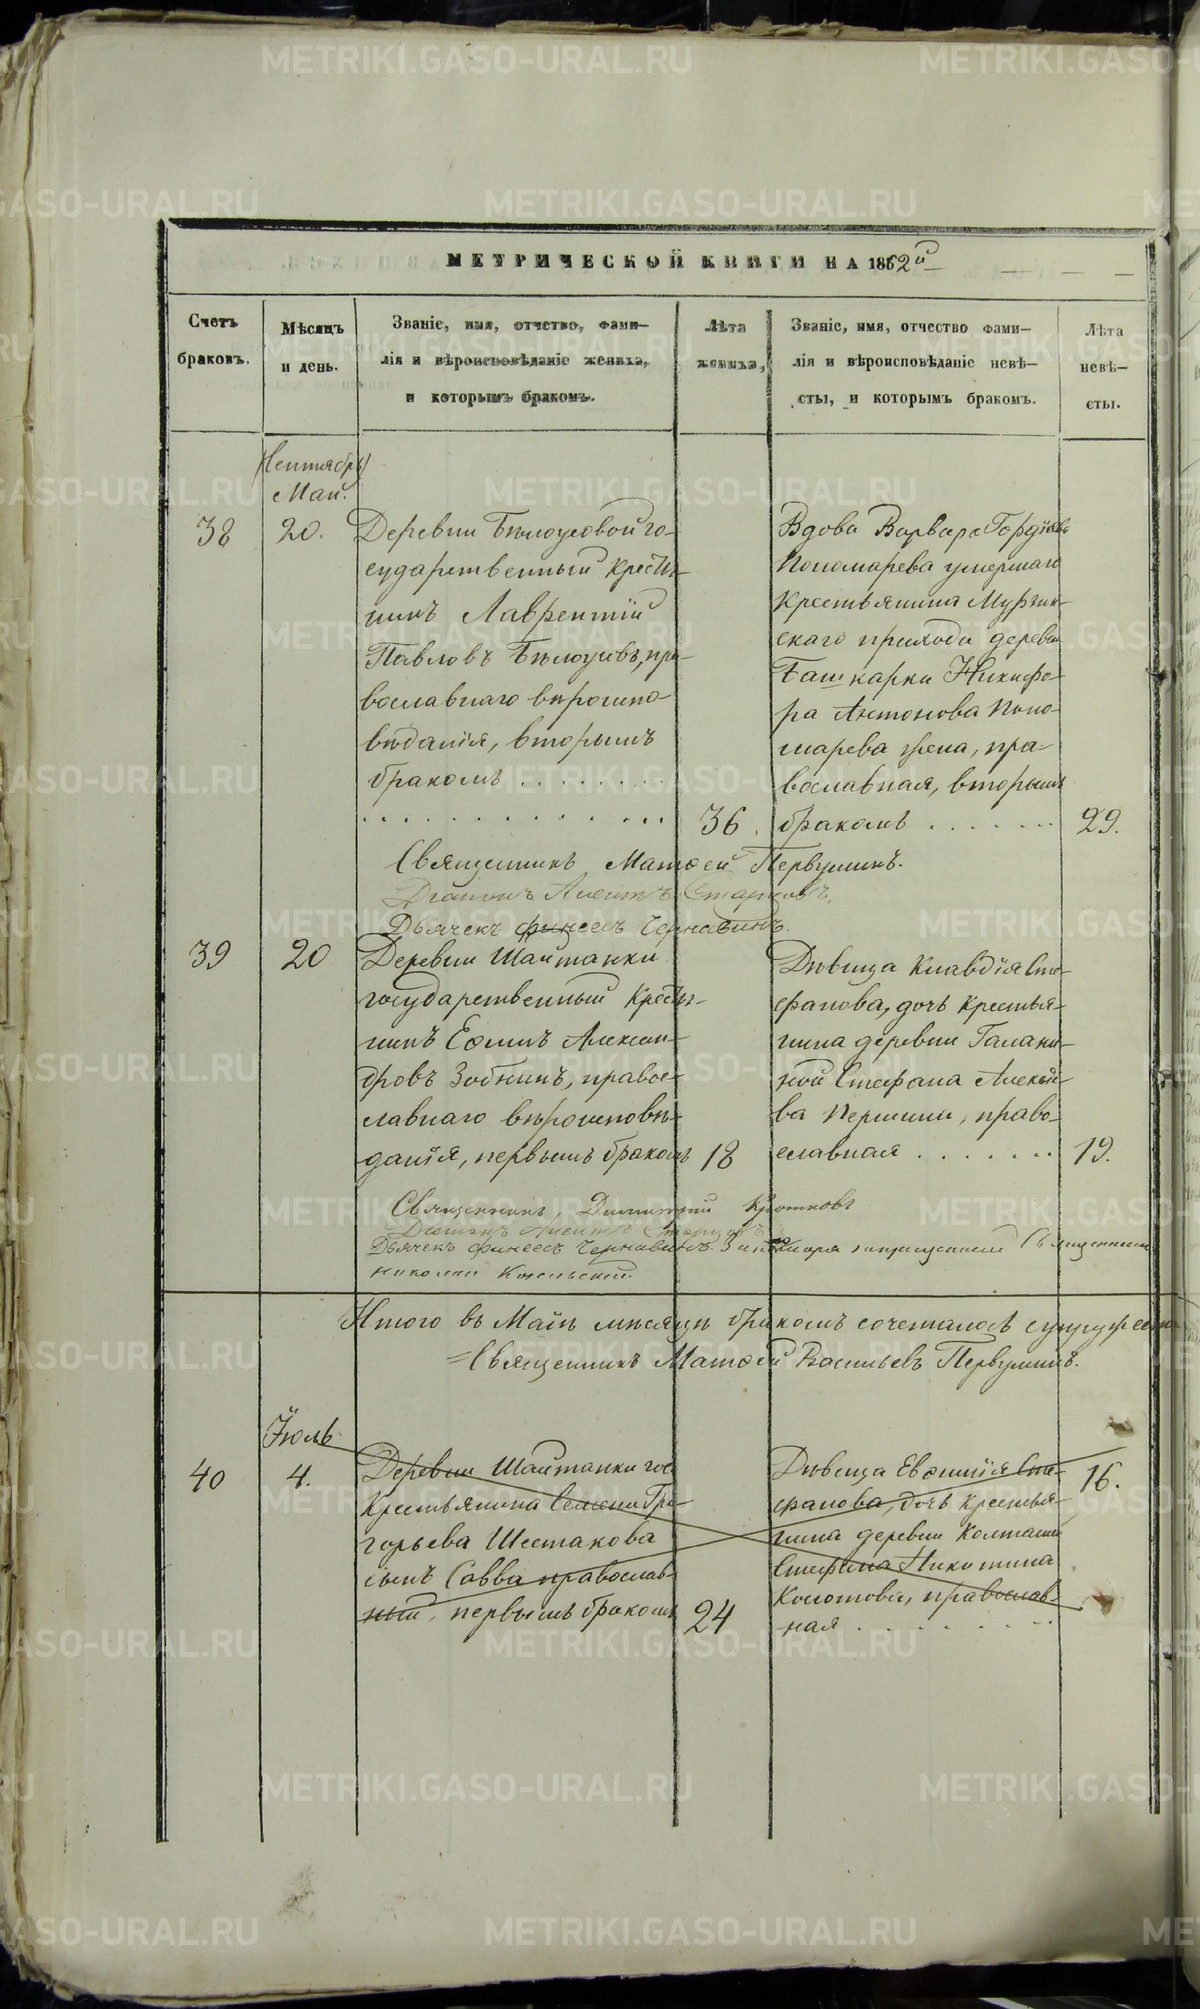 МЕТРИЧЕСКОЙ КНИГИ НА 1862й
Счетъ браковъ.
Мѣсяцъ и день.
Званіе, имя, отчество, фами-
лія и вѣроисповѣданіе жениха,
и которымъ бракомъ.
Лѣта жениха,
Званіе, имя, отчество фами-
лія и вѣроисповѣданіе невѣ-
сты, и которымъ бракомъ.
Лѣта невѣ-
сты.
Май.
38
20.
Деревни Бѣлоусовой го-
сударственный кресть-
нинъ Лаврентій
Павловъ Бѣлоусовъ, пра-
вославнаго вѣроиспо-
вѣданія, вторымъ
бракомъ . . . . . . .
36.
Вдова Варвара Гордѣева
Пономарева умершаго
крестьянина Мурзин-
скаго прихода деревни
Башкарки Никифо-
ра Антонова Поно-
марева жена, пра-
вославная, вторымъ
бракомъ . . . . . .
29.
Священникъ Матѳей Первушинъ.
Діаконъ Старцовъ,
Дьячекъ Финеесъ Чернавинъ.
39
20
Деревни Шайтанки
государственный кресть-
нинъ Ефимъ Алексан-
дровъ Зобнинъ, право-
славнаго вѣроисповѣ-
данія, первымъ бракомъ
18
Дѣвица Клавдія Сте-
фанова, дочь крестья-
нина деревни Галани-
ной Стефана Алексѣе-
ва Першина, право-
славная . . . . . . .
19.
Священникъ, Димитрій Кротковъ
Діаконъ Старцовъ
Дьячекъ Финеесъ Чернавинъ. За пономаря запрещенный Священникъ
Николай
Итого въ Маѣ мѣсяцѣ бракомъ сочеталось
=Священникъ Матѳей Васильевъ Первушинъ.
Іюль
40
4.
Деревни Шайтанки гос.
крестьянина Семена Гри-
горьева Шестакова
сынъ Савва православ-
ный, первымъ бракомъ
24
Дѣвица Евфимія Сте-
фанова, дочь крестья-
нина деревни Колташи
Стефана Никитина
Колотова, православ-
ная . . . . . . . . .
16.
METRIKI.GASO-URAL.RU